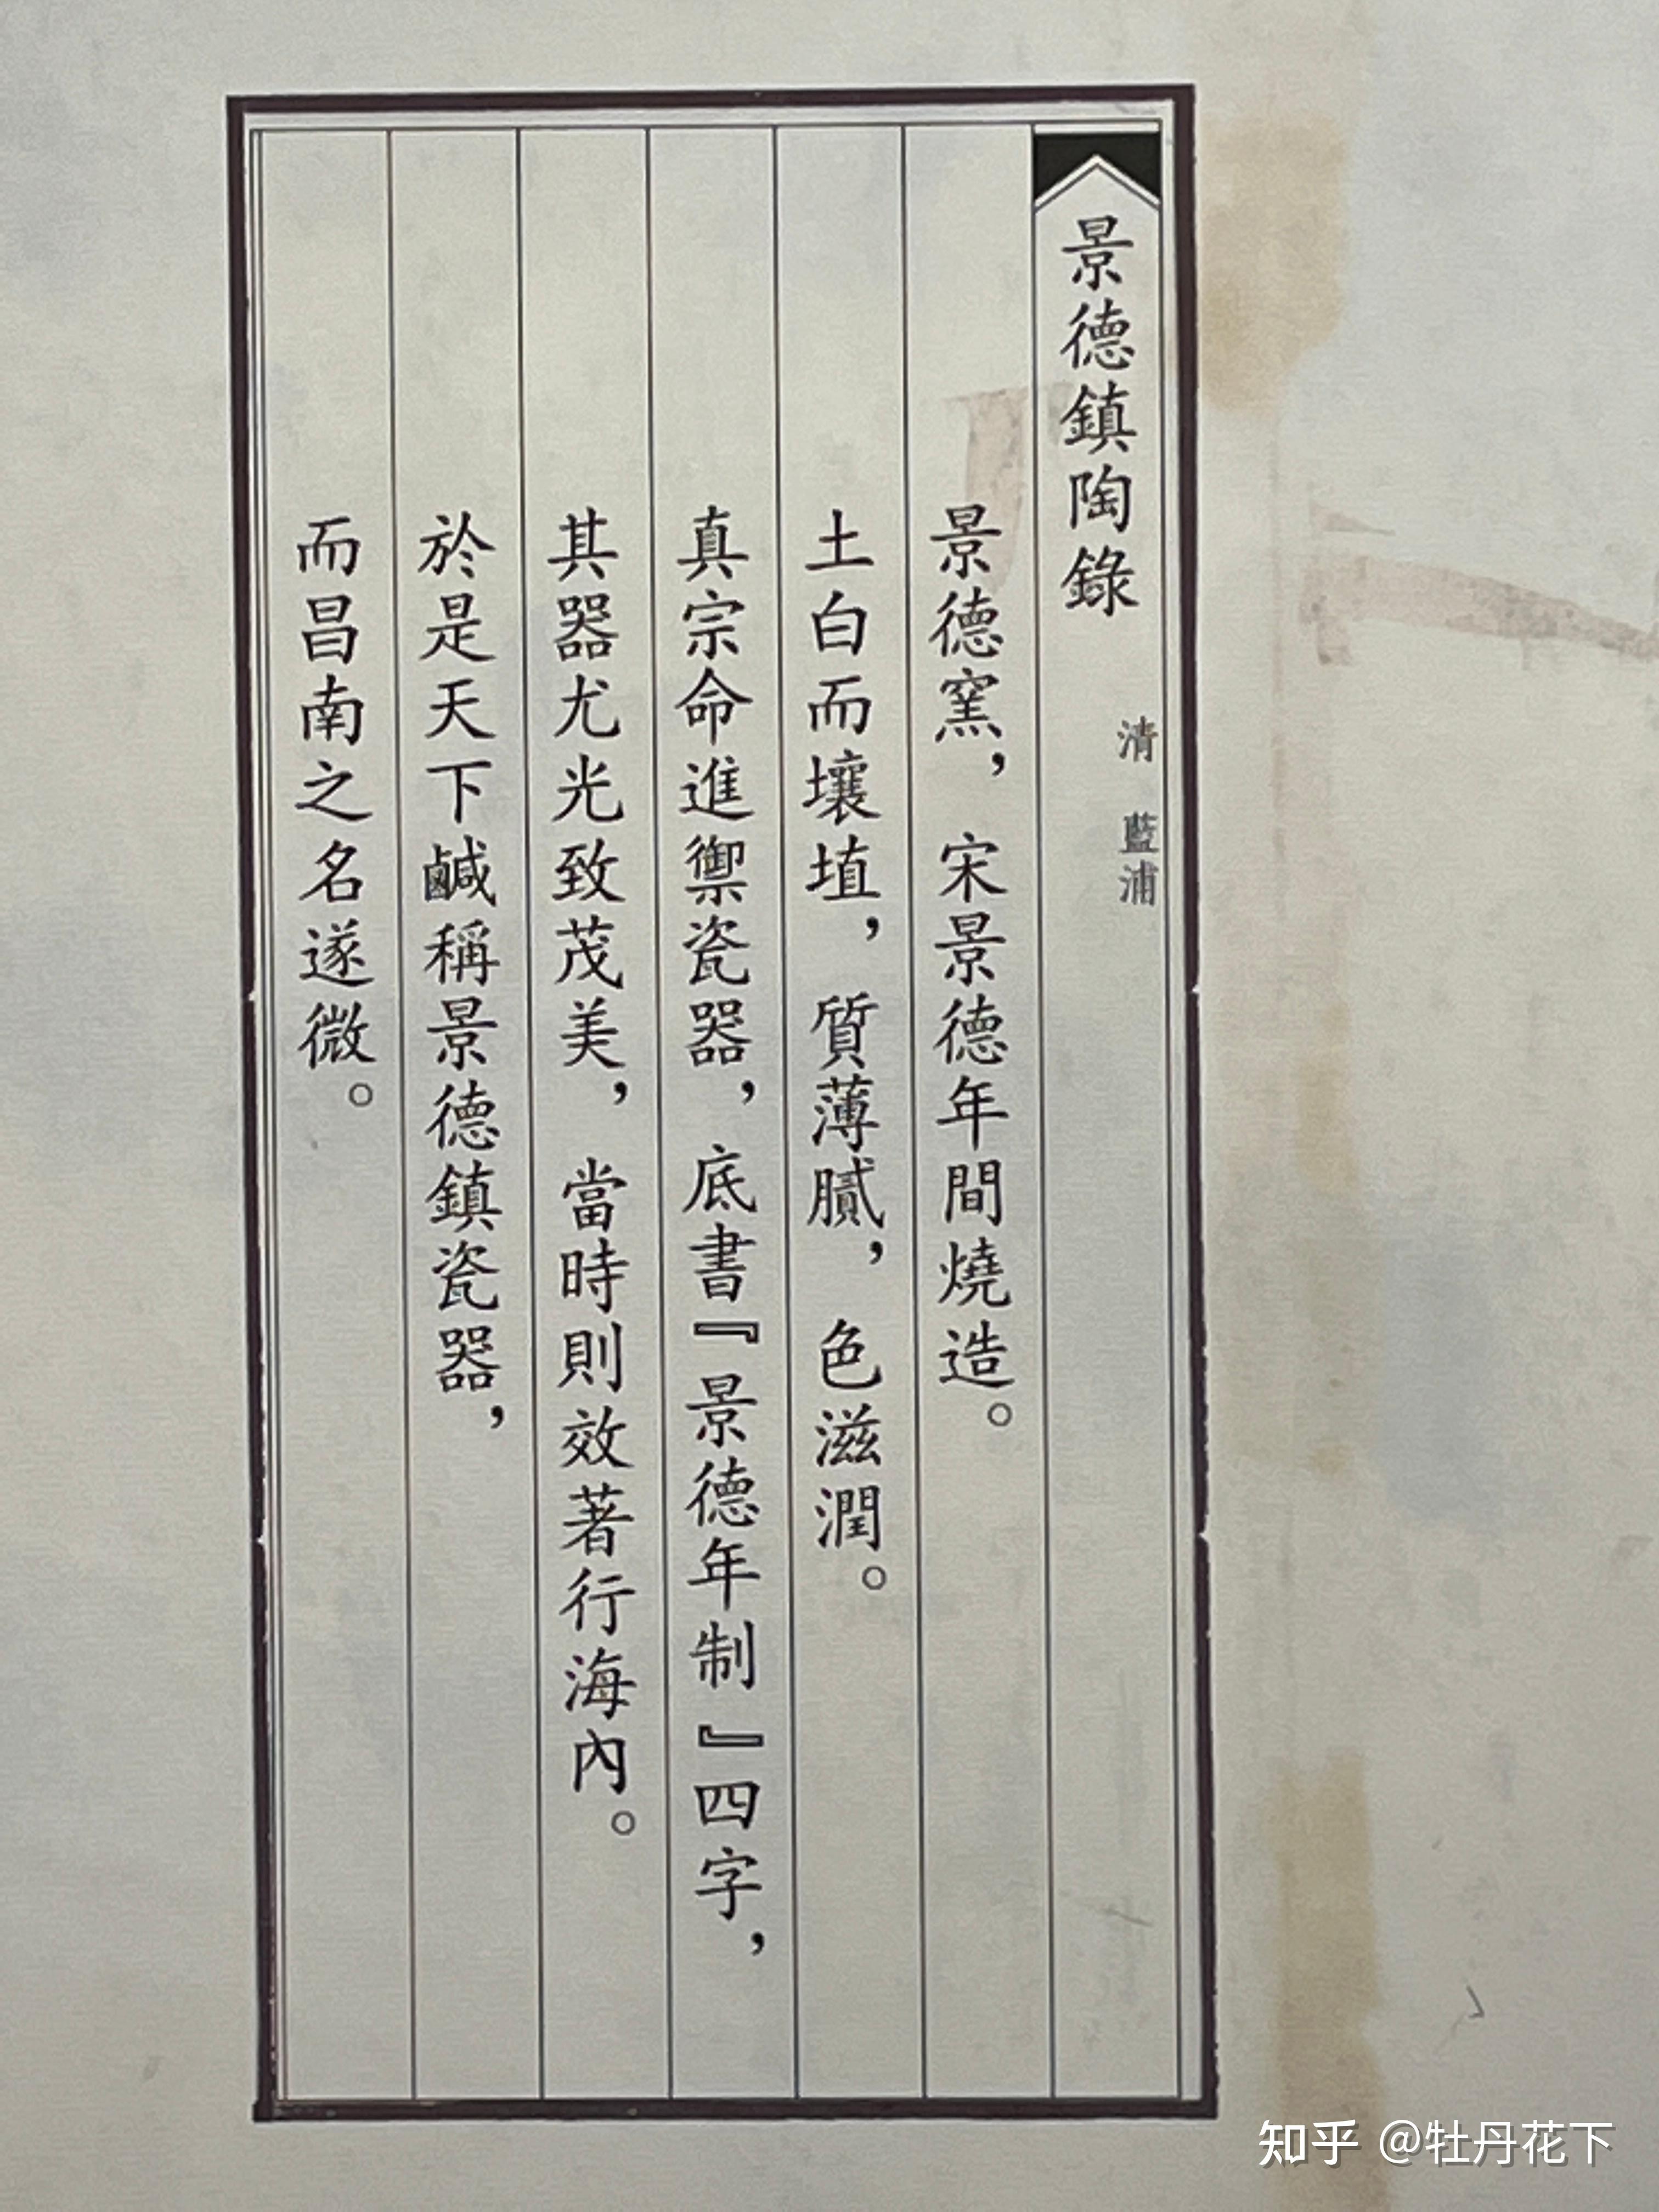 景德鎮陶錄
清 藍浦
景德窯，宋景德年間燒造。
土白而壤埴，質薄膩，色滋潤。
真宗命進禦瓷器，底書『景德年制』四字，
其器尤光致茂美，當時則效著行海內。
於是天下鹹稱景德鎮瓷器，
而昌南之名遂微。
知乎 @牡丹花下